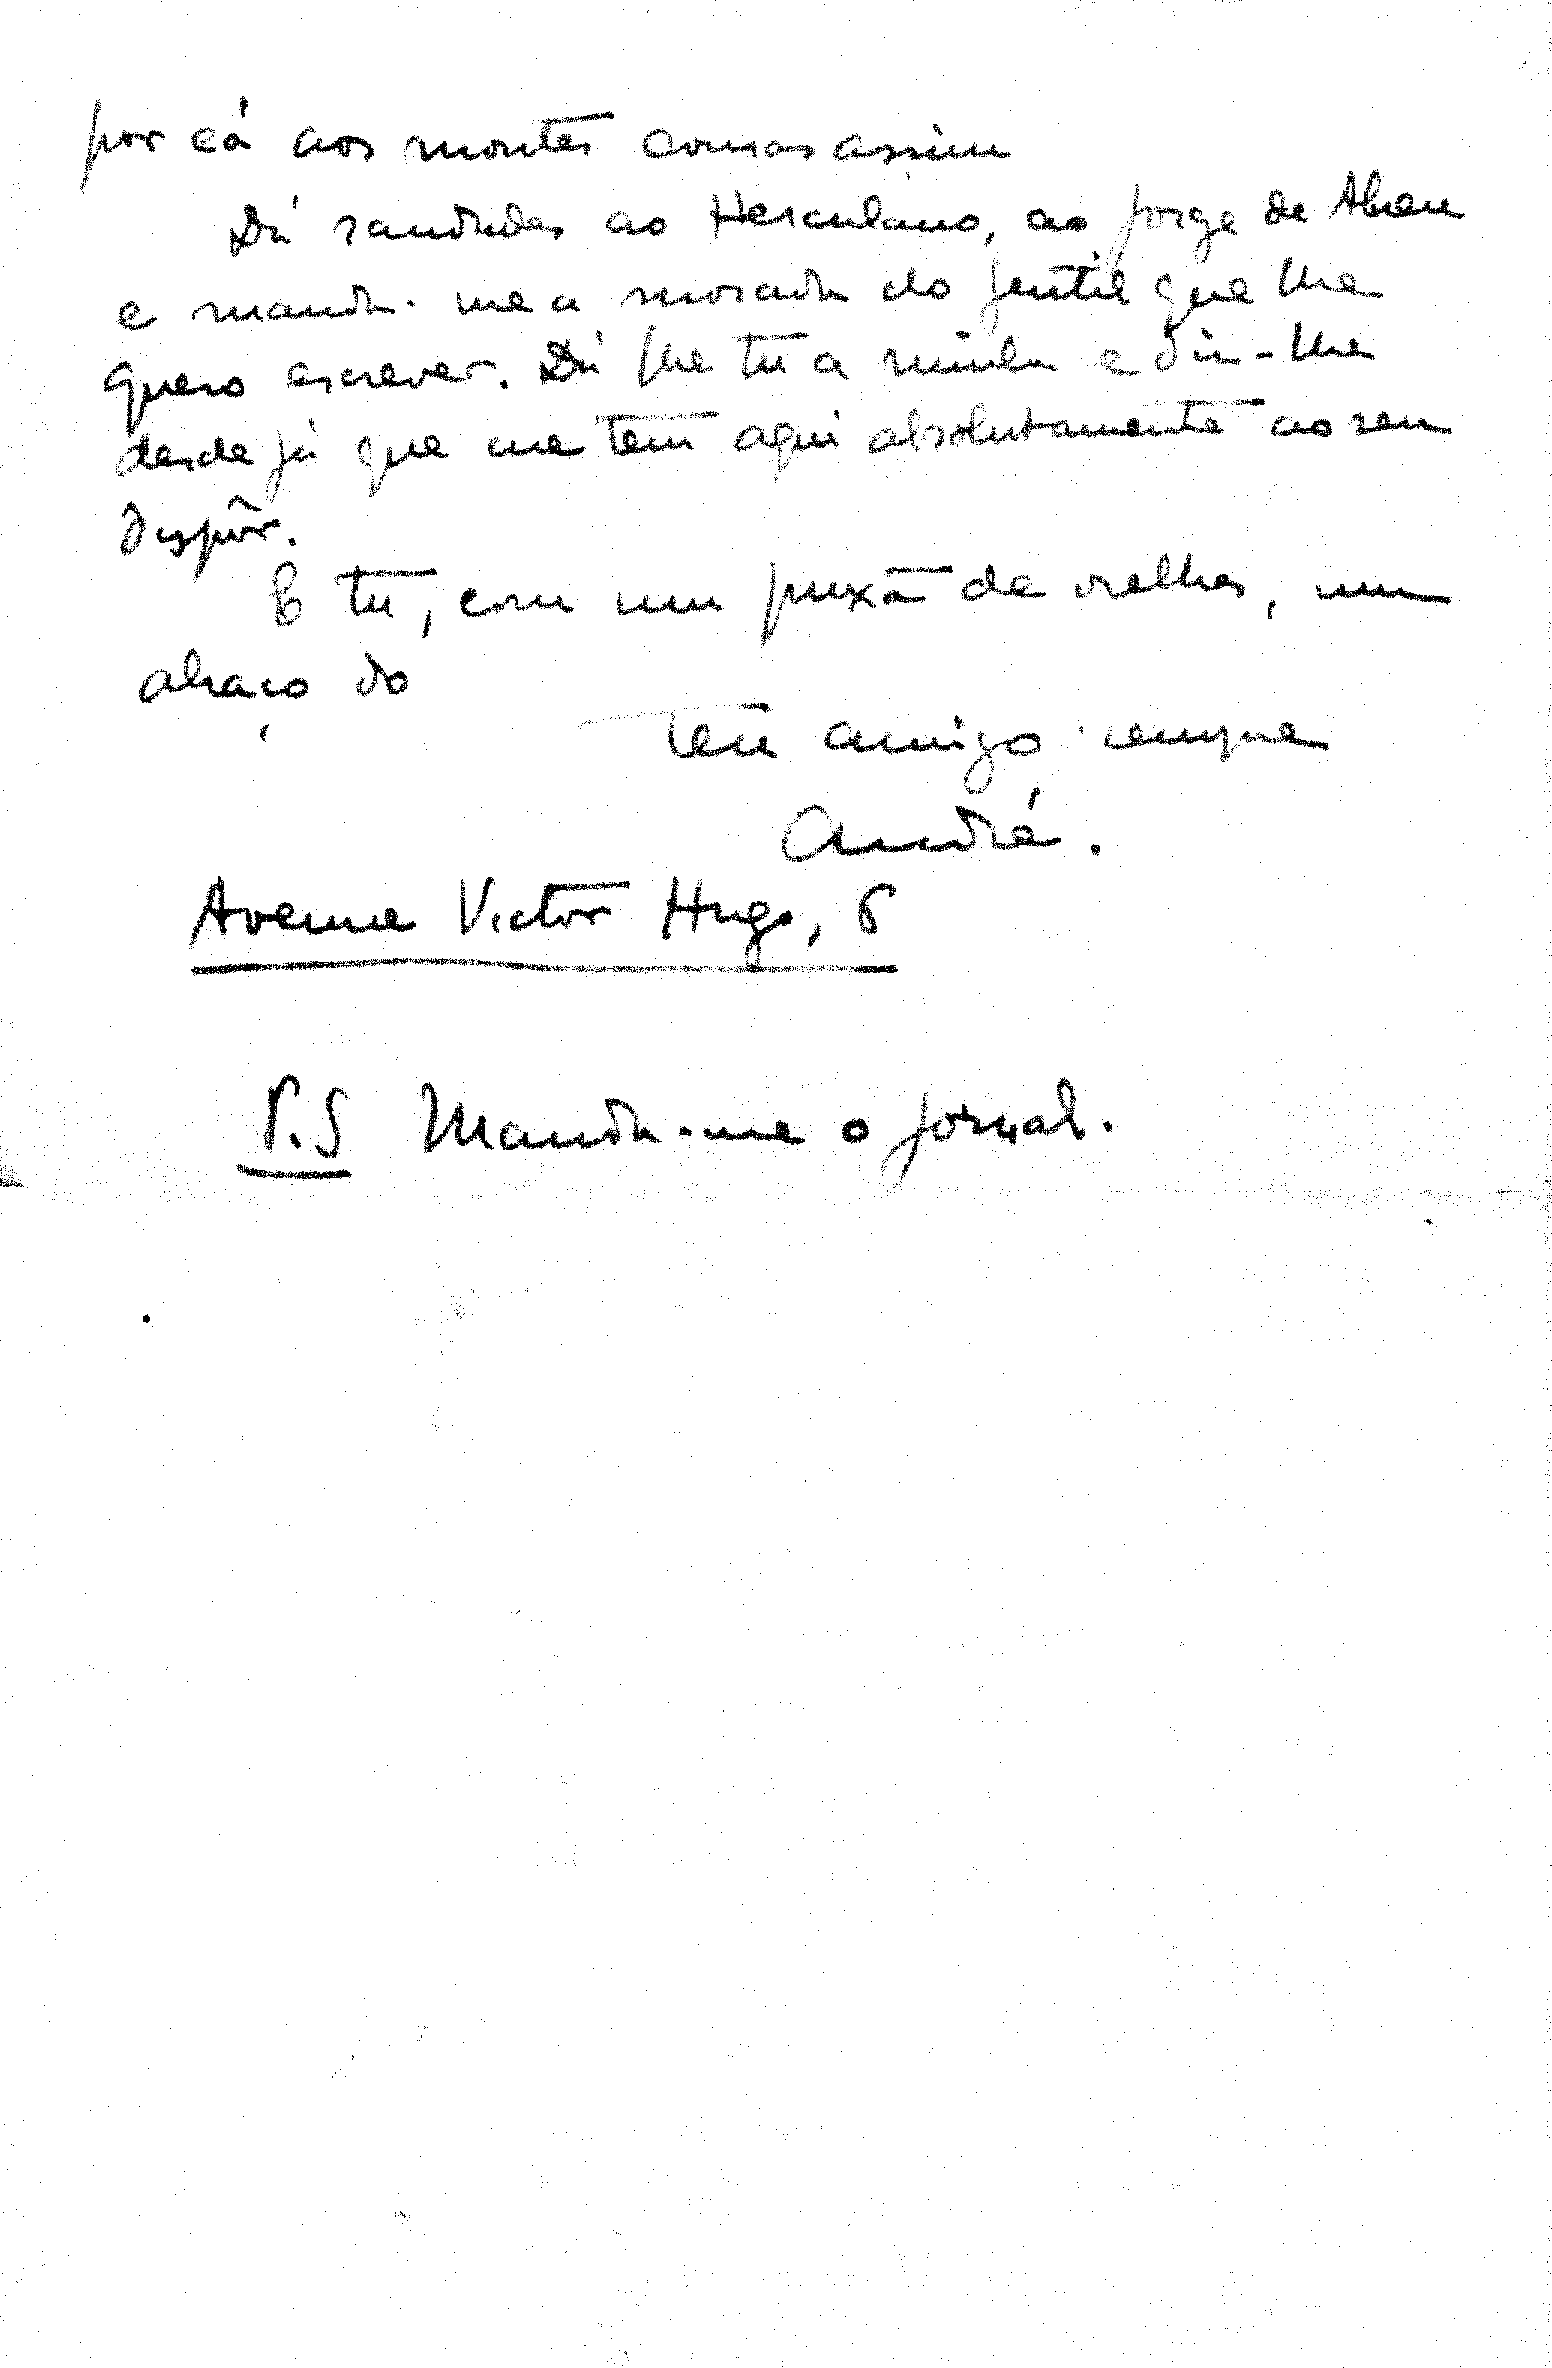 por cá aos montes cousas assim
Dá saudades ao Herculano, ao Jorge de Abreu
e manda-me a morada do Gentil que lhe
quero escrever. Dá lhe tu a minha e diz-lhe
desde já que me tem aqui absolutamente ao seu
dispôr.
E tu, com um puxão de orelhas, um
abraço do
Teu amigo sempre
André.
Avenue Victor Hugo, 6
P.S Manda-me o jornal.